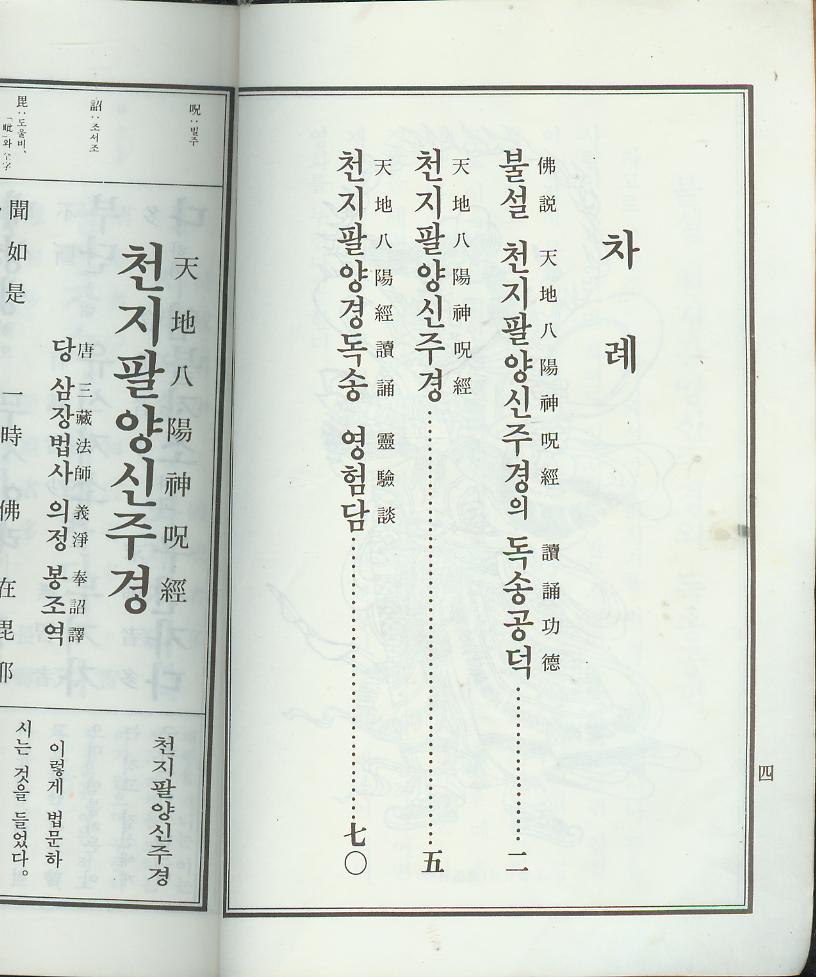 차례
佛説 天地八陽神呪經 讀誦功德
불설 천지팔양신주경의 독송공덕 二
天地八陽神呪經
천지팔양신주경 五
天地八陽經讀誦 靈驗談
천지팔양경독송 영험담 七〇
四
呪:빌주
詔:조서조
毘:도울비、
天地八陽神呪經
천지팔양신주경
唐 三藏法師 義淨 奉詔譯
당 삼장법사 의정 봉조역
聞如是 一時 佛 在毘耶
천지팔양신주경
이렇게 법문하
시는 것을 들었다。